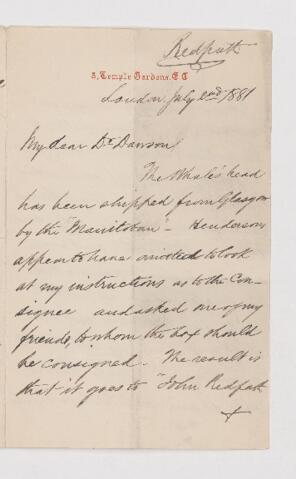 Redpath
3, Temple Gardens. E.C
London July 2nd 1881
My dear Dr. Dawson,
The Whale's head
has been shipped from Glasgow
by the "Manitoban" - Henderson
appear to have omitted to look
at my instructions as to the Con-
signee and asked one of my
friends, to whom the box should
be consigned. The result is
that it goes to "John Redpath